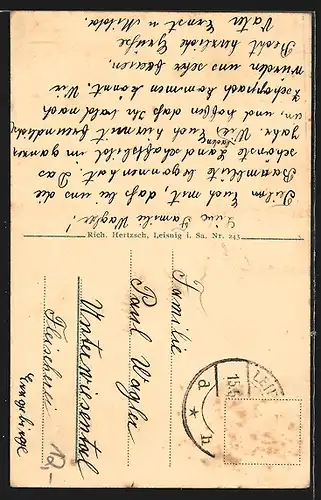 Liebe Familie Wagler!
Teilen Euch mit, daß bei uns die
Baumblüte begonnen hat. Das
schönste Landschaftsbild im ganzen
Jahr. Wir laden Euch hiermit freundlichst
ein, und hoffen daß Ihr bald nach
Zschopach kommen könnt. Wir
würden uns sehr freuen.
Recht herzliche Grüße
Vater Ernst u.
Rich. Hertzsch, Leisnig i. Sa. Nr. 243
Familie
Paul Wagler
Unterwiesenthal
Fleischerei
Erzgebirge
12,-
LEI
15.5
d * h